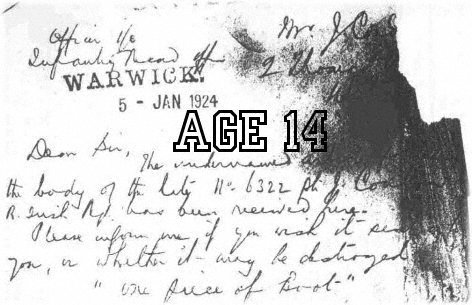 Officer i/c Mrs J. Co
Infantry Record Off 2 Thomas
WARWICK.
5 - JAN 1924
AGE 14
Dear Sir,
The undernamed
the body of the late No 6322 Pte J. Con
R. Irish Rgt. has been received here.
Please inform me, if you wish it sen
you, or whether it may be destroyed
" one piece of Boot "